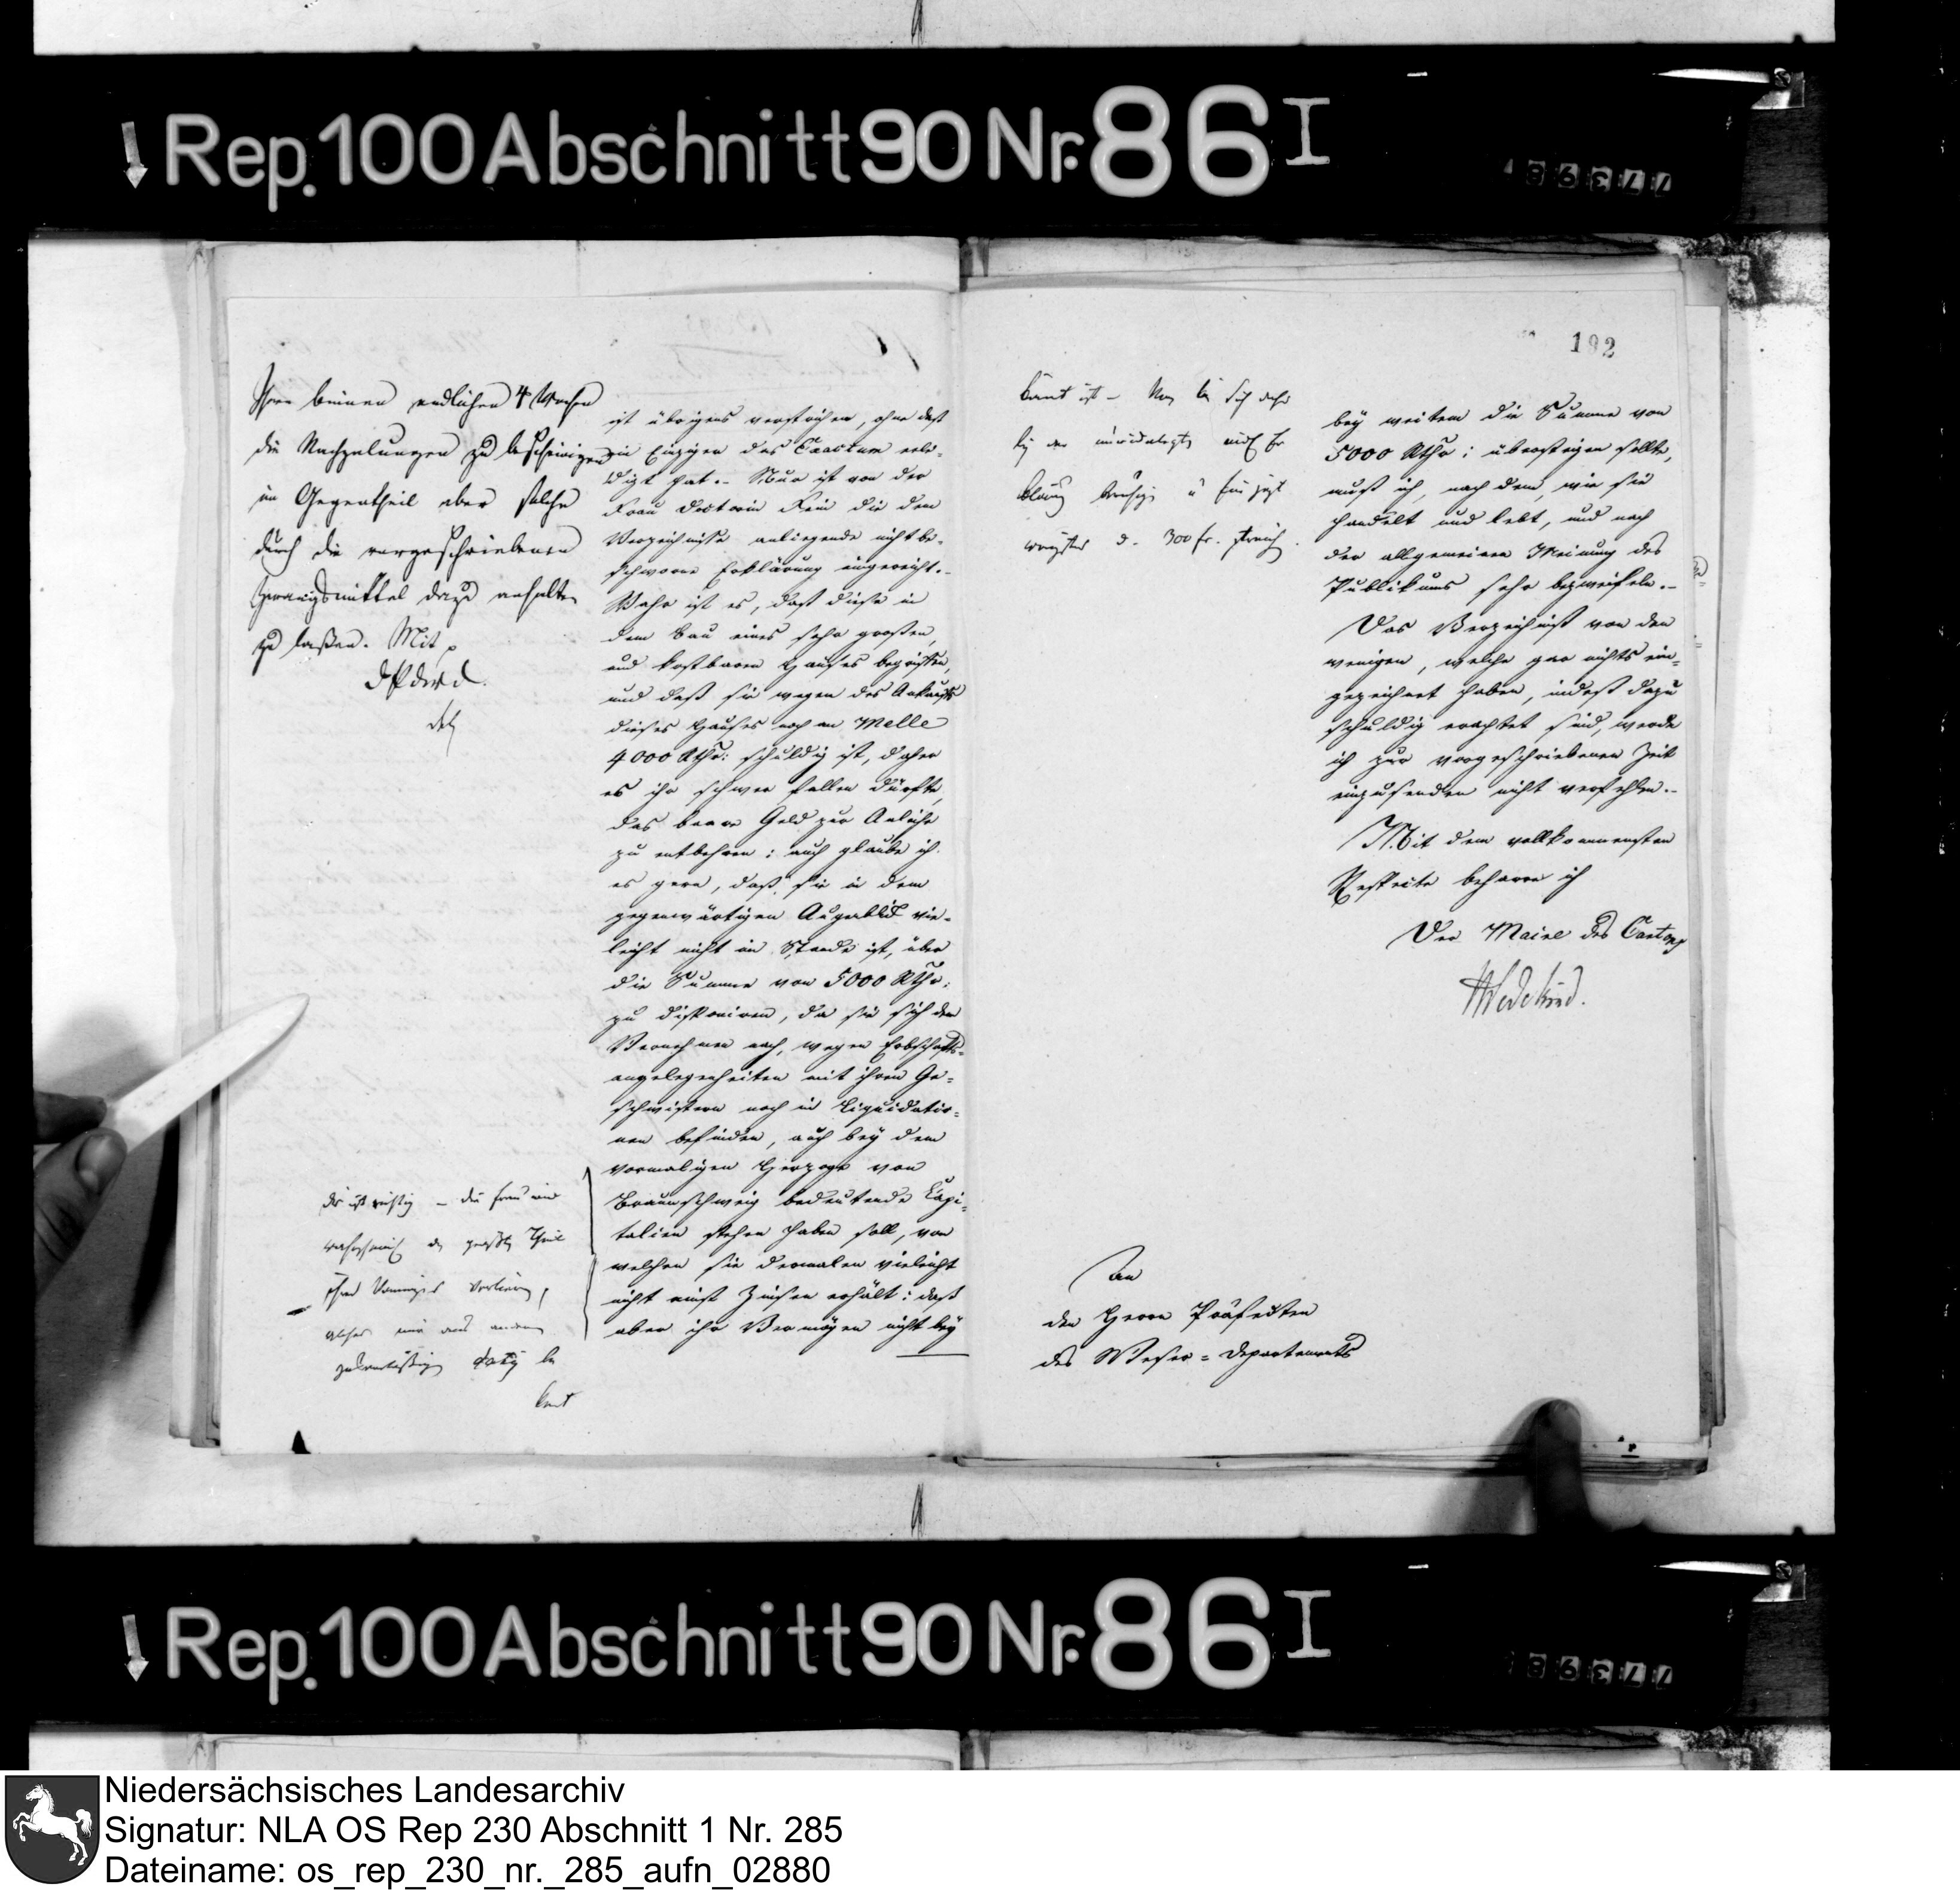 Rep. 100 Abschnitt 90 Nr. 86 I
77398
192
binnen endlichen 4 Wochen
die Nachzalungen zu bescheinigen
im Gegentheil aber solche
durch die vorgeschriebenen
Zwangsmittel dazu anhalten
zu laßen. Mit
ist übrigens verstrichen, ohne daß
ein Einziger das Exactum erle-
digt hat.- Nur ist von der
Frau Doctorin Fein die dem
Verzeichnisse anliegende nicht be-
schworne Erklärung eingereicht.-
Wahr ist es, daß diese in
dem Bau eines sehr großen,
und kostbaren Hauses begriffen,
und daß sie wegen des Ankaufs
dieses Hauses noch an Melle
4000 Rthr: schuldig ist, daher
es ihr schwer fallen dürfte,
das baare Geld zur Anleihe
zu entbehren; auch glaube ich
es gern, daß sie in dem
gegenwärtigen Augenblick vie-
leicht nicht im Stande ist, über
die Summe von 5000 Rthr:
zu disponiren, da sie sich dem
Vernehmen nach, wegen Erbschafts-
angelegenheiten mit ihren Ge-
schwistern noch in Liquidatio-
nen befinden, auch bey dem
vormaligen Herzoge von
Braunschweig bedeutende Capi-
talien stehen haben soll, von
welchen sie dermalen vieleicht
nicht einst Zinsen erhält: daß
aber ihr Vermögen nicht bey
ist richtig - die Frau wird
größten Theil
ihres Vermögens verlieren,
kant
kant ist -
300 fr.
bey weitem die Summe von
5000 Rthr: übersteigen sollte,
muß ich, nach dem, wie sie
handelt und lebt, und nach
der allgemeinen Meinung des
Publikums sehr bezweifeln.-
Das Verzeichniß von den
wenigen, welche gar nichts ein-
gezeichnet haben, indeß dazu
schuldig erachtet sind, werde
ich zur vorgeschriebenen Zeit
einzusenden nicht verfehlen.-
Mit dem vollkommensten
Respecte beharre ich
Der Maire des Cantons
Wedekind.
An
den Herrn Präfecten
des Weser-Departements
Rep. 100 Abschnitt 90 Nr. 86 I
77398
Niedersächsisches Landesarchiv
Signatur: NLA OS Rep 230 Abschnitt 1 Nr. 285
Dateiname: os_rep_230_nr._285_aufn_02880